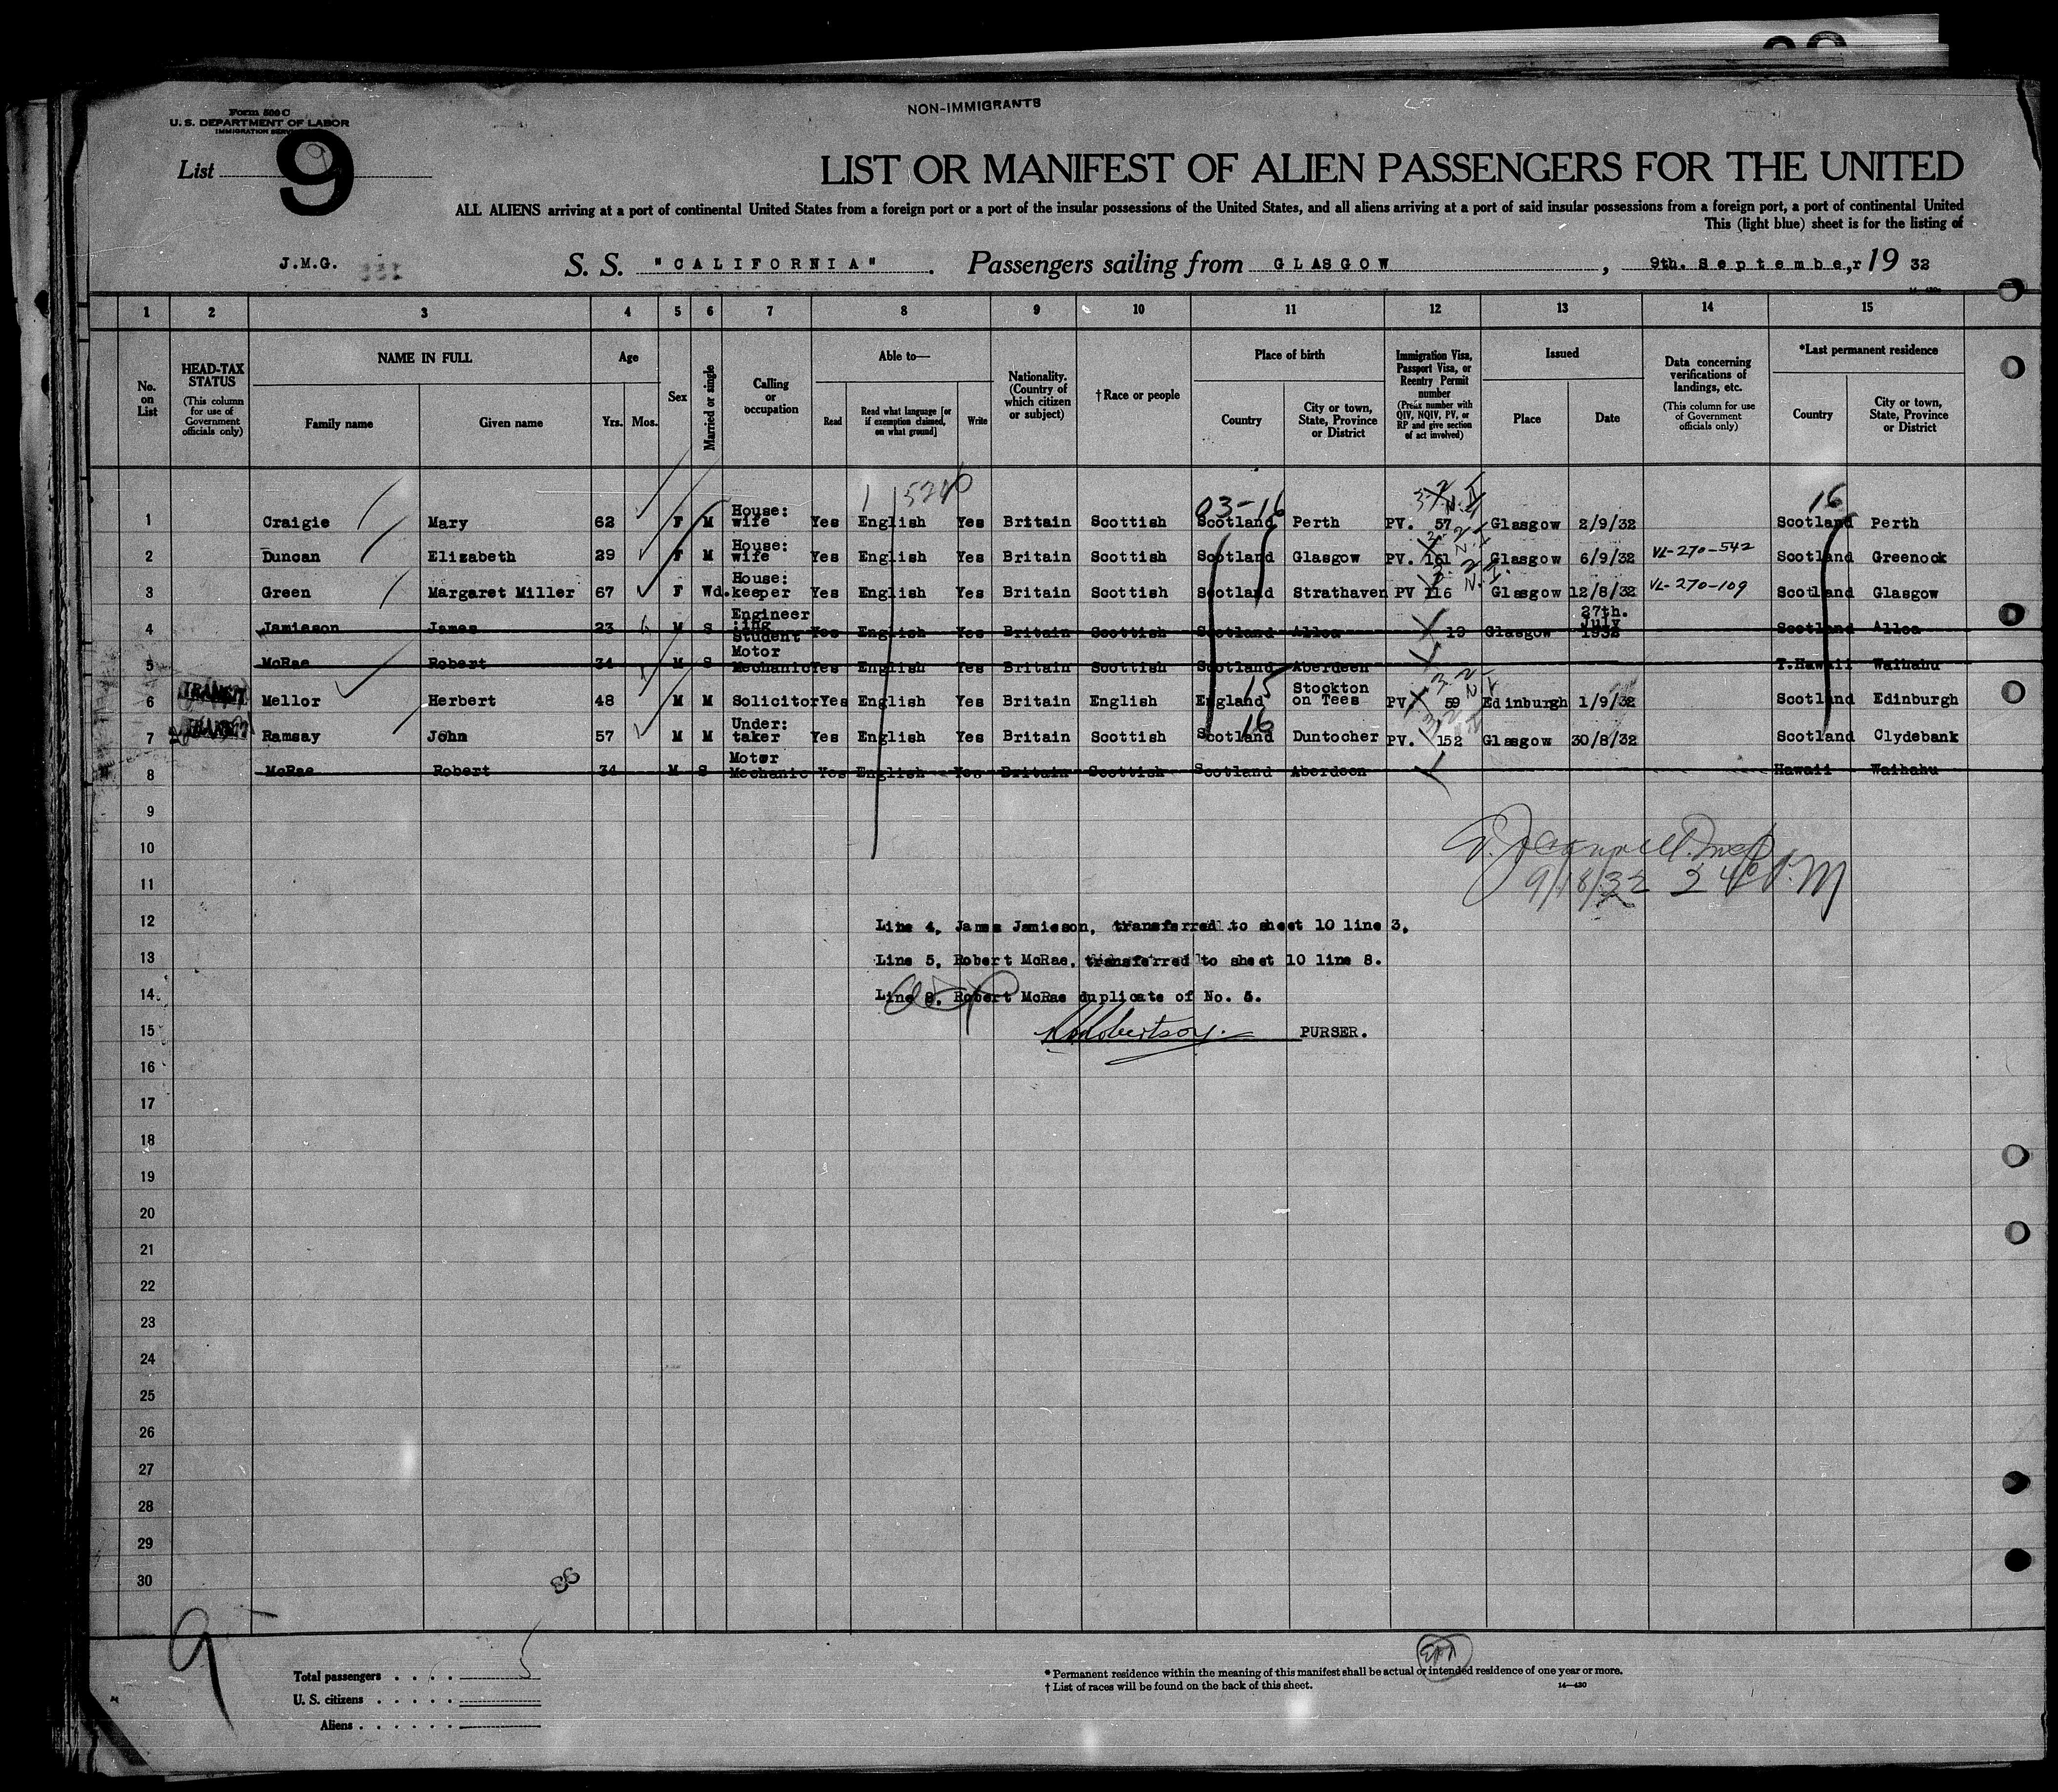 NON-IMMIGRANTS
Form 500 C
U. S. DEPARTMENT OF LABOR
IMMIGRATION SERVICE
List 9
LIST OR MANIFEST OF ALIEN PASSENGERS FOR THE UNITED
ALL ALIENS arriving at a port of continental United States from a foreign port or a port of the insular possessions of the United States, and all aliens arriving at a port of said insular possessions from a foreign port, a port of continental United
This (light blue) sheet is for the listing of
J.M.G. S. S. "CALIFORNIA" . Passengers sailing from GLASGOW , 9th. September,r 19 32
1 2 3 4 5 6 7 8 9 10 11 12 13 14 15
No. on List
HEAD-TAX STATUS (This column for use of Government officials only)
NAME IN FULL
Family name Given name
Age
Yrs. Mos.
Sex
Married or single
Calling or occupation
Able to—
Read Read what language [or if exemption claimed, on what ground] Write
Nationality. (Country of which citizen or subject)
†Race or people
Place of birth
Country City or town, State, Province or District
Immigration Visa, Passport Visa, or Reentry Permit number (Prefix number with QIV, NQIV, PV, or RP and give section of act involved)
Issued
Place Date
Data concerning verifications of landings, etc. (This column for use of Government officials only)
*Last permanent residence
Country City or town, State, Province or District
5240 03-16 16
1 Craigie Mary 62 F M House: wife Yes English Yes Britain Scottish Scotland Perth PV. 57 Glasgow 2/9/32 Scotland Perth
2 Duncan Elizabeth 29 F M House: wife Yes English Yes Britain Scottish Scotland Glasgow PV. 161 Glasgow 6/9/32 VL-270-542 Scotland Greenock
3 Green Margaret Miller 67 F Wd. House: keeper Yes English Yes Britain Scottish Scotland Strathaven PV 116 Glasgow 12/8/32 VL-270-109 Scotland Glasgow
4 Jamieson James 23 M S Engineer :ing Student Yes English Yes Britain Scottish Scotland Alloa 19 Glasgow 27th. July 1932 Scotland Alloa
5 McRae Robert 34 M S Motor Mechanic Yes English Yes Britain Scottish Scotland Aberdeen T.Hawaii Waihahu
6 TRANSIT Mellor Herbert 48 M M Solicitor Yes English Yes Britain English England 15 Stockton on Tees PV. 59 Edinburgh 1/9/32 Scotland Edinburgh
7 TRANSIT Ramsay John 57 M M Under: taker Yes English Yes Britain Scottish Scotland 16 Duntocher PV. 152 Glasgow 30/8/32 Scotland Clydebank
8 McRae Robert 34 M S Motor Mechanic Yes English Yes Britain Scottish Scotland Aberdeen Hawaii Waihahu
9
10
11 9/18/32 2 40 P.M
12 Line 4, James Jamieson, transferred to sheet 10 line 3.
13 Line 5, Robert McRae, transferred to sheet 10 line 8.
14 Line 8, Robert McRae duplicate of No. 5.
15 Robertson PURSER.
16
17
18
19
20
21
22
23
24
25
26
27
28
29
30
9
Total passengers . . . . 5
U. S. citizens . . . . .
Aliens . . . . . .
* Permanent residence within the meaning of this manifest shall be actual or intended residence of one year or more.
† List of races will be found on the back of this sheet.
14—430